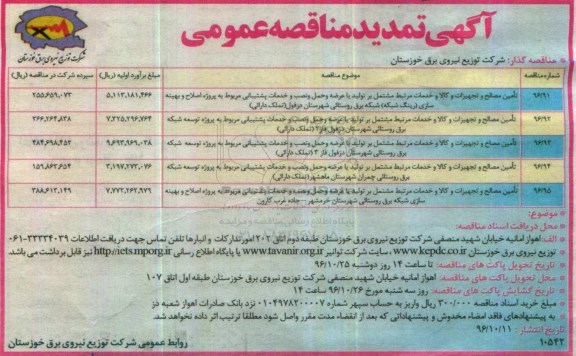 آگهی تمدید مناقصه عمومی
شرکت توزیع نیروی برق خوزستان
مناقصه گذار: شرکت توزیع نیروی برق خوزستان
شماره مناقصه موضوع مناقصه مبلغ برآورد اولیه (ریال) سپرده شرکت در مناقصه (ریال)
۹۶/۹۱ تأمین مصالح و تجهیزات و کالا و خدمات مرتبط مشتمل بر تولید یا عرضه وحمل ونصب و خدمات پشتیبانی مربوط به پروژه اصلاح و بهینه سازی (رینگ شبکه) شبکه برق روستائی شهرستان دزفول(تملک دارائی) ۵,۱۱۳,۱۸۱,۴۶۶ ۲۵۵,۶۵۹,۰۷۳
۹۶/۹۲ تأمین مصالح و تجهیزات و کالا و خدمات مرتبط مشتمل بر تولید یا عرضه وحمل ونصب و خدمات پشتیبانی مربوط به پروژه توسعه شبکه برق روستائی شهرستان دزفول فاز۲ (تملک دارائی) ۷,۳۲۵,۲۹۶,۷۶۴ ۳۶۶,۲۶۴,۸۳۸
تأمین مصالح و تجهیزات و کالا و خدمات مرتبط مشتمل بر تولید یا عرضه وحمل ونصب و خدمات پشتیبانی مربوط به پروژه توسعه شبکه برق روستائی شهرستان دزفول فاز ۳ (تملک دارائی) ۹,۶۹۳,۹۶۹,۰۳۸ ۴۸۴,۶۹۸,۴۵۲
۹۶/۹۴ تأمین مصالح و تجهیزات و کالا و خدمات مرتبط مشتمل بر تولید یا عرضه وحمل ونصب و خدمات پشتیبانی مربوط به پروژه توسعه شبکه برق روستائی چمران شهرستان ماهشهر(تملک دارائی) ۳,۱۹۷,۲۷۳,۰۷۶ ۱۵۹,۸۶۳,۶۵۴
۹۶/۹۵ تأمین مصالح و تجهیزات و کالا و خدمات مرتبط مشتمل بر تولید یا عرضه وحمل ونصب و خدمات پشتیبانی مربوط به پروژه اصلاح و بهینه سازی شبکه برق روستائی شهرستان خرمشهر - جاده غرب کارون ۷,۷۷۲,۲۶۲,۹۷۹ ۳۸۸,۶۱۳,۱۴۹
موضوع:
محل دریافت اسناد مناقصه:
الف:اهواز امانیه خیابان شهید منصفی شرکت توزیع نیروی برق خوزستان طبقه دوم اتاق ۲۰۲ امور تدارکات و انبارها تلفن تماس جهت دریافت اطلاعات ۳۳۳۳۴۰۳۹-۰۶۱
توزیع نیروی برق خوزستان www.kepdc.co.ir ، سایت شرکت توانیر www.tavanir.org.ir یا پایگاه اطلاع رسانی http://iets.mporg.ir نیز قابل برداشت می باشد
تاریخ تحویل پاکت های مناقصه: تا ساعت ۱۴ روز دوشنبه ۹۶/۱۰/۲۵
محل تحویل پاکت های مناقصه: اهواز امانیه خیابان شهید منصفی شرکت توزیع نیروی برق خوزستان طبقه اول اتاق ۱۰۷
تاریخ گشایش پاکت های مناقصه: روز سه شنبه مورخ ۹۶/۱۰/۲۶ ساعت ۱۴
مبلغ خرید اسناد مناقصه ۳۰۰/۰۰۰ ریال واریز به حساب سپهر شماره ۰۱۰۴۹۷۸۲۰۰۰۰۷ نزد بانک صادرات اهواز شعبه دز
به پیشنهادهای فاقد امضاء مخدوش و پیشنهاداتی که بعد از انقضاء مدت مقرر واصل شود مطلقا ترتیب اثر داده نخواهد شد.
تاریخ انتشار: ۹۶/۱۰/۱۱
۱۰۵۴۲ روابط عمومی شرکت توزیع نیروی برق خوزستان